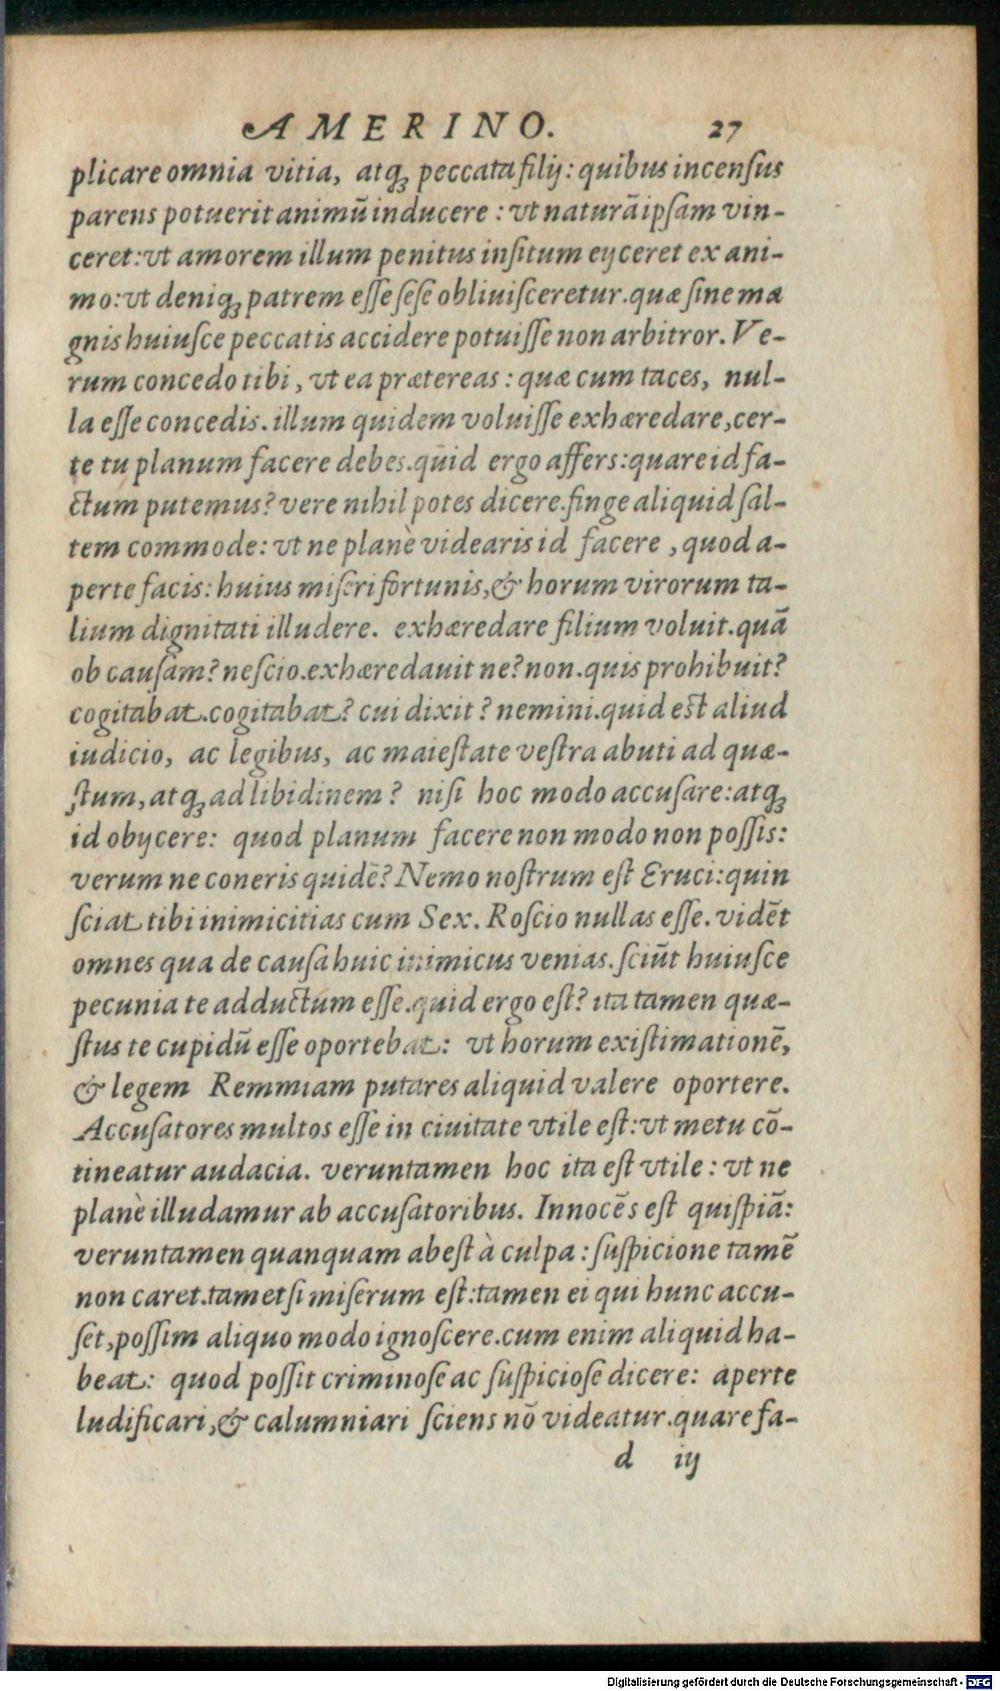 AMERINO. 27
plicare omnia vitia, atq; peccata filij: quibus incensus
parens potuerit animū inducere : vt naturā ipsam vin-
ceret: vt amorem illum penitus insitum eijceret ex ani-
mo: vt deniq; patrem esse sese obliuisceretur. quæ sine ma
gnis huiusce peccatis accidere potuisse non arbitror. Ve-
rum concedo tibi, vt ea prætereas : quæ cum taces, nul-
la esse concedis. illum quidem voluisse exhæredare, cer-
te tu planum facere debes. quid ergo affers: quare id fa-
ctum putemus? vere nihil potes dicere. finge aliquid sal-
tem commode: vt ne planè videaris id facere , quod a-
perte facis: huius miseri fortunis, & horum virorum ta-
lium dignitati illudere. exhæredare filium voluit. quā
ob causam? nescio. exhæredauit ne? non. quis prohibuit?
cogitabat. cogitabat? cui dixit? nemini. quid est aliud
iudicio, ac legibus, ac maiestate vestra abuti ad quæ-
stum, atq; ad libidinem? nisi hoc modo accusare: atq;
id obijcere: quod planum facere non modo non possis:
verum ne coneris quidē? Nemo nostrum est Eruci: quin
sciat tibi inimicitias cum Sex. Roscio nullas esse. vidēt
omnes qua de causa huic inimicus venias. sciūt huiusce
pecunia te adductum esse. quid ergo est? ita tamen quæ-
stus te cupidū esse oportebat: vt horum existimationē,
& legem Remmiam putares aliquid valere oportere.
Accusatores multos esse in ciuitate vtile est: vt metu cō-
tineatur audacia. veruntamen hoc ita est vtile : vt ne
planè illudamur ab accusatoribus. Innocēs est quispiā:
veruntamen quanquam abest à culpa : suspicione tamē
non caret. tametsi miserum est: tamen ei qui hunc accu-
set, possim aliquo modo ignoscere. cum enim aliquid ha-
beat: quod possit criminose ac suspiciose dicere: aperte
ludificari, & calumniari sciens nō videatur. quare fa-
d iij
Digitalisierung gefördert durch die Deutsche Forschungsgemeinschaft - DFG